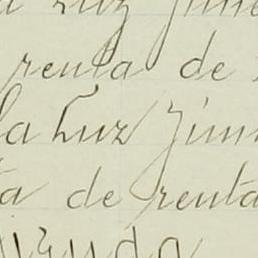 a Luz Jime
renta de
la Luz Jim
ta de renta